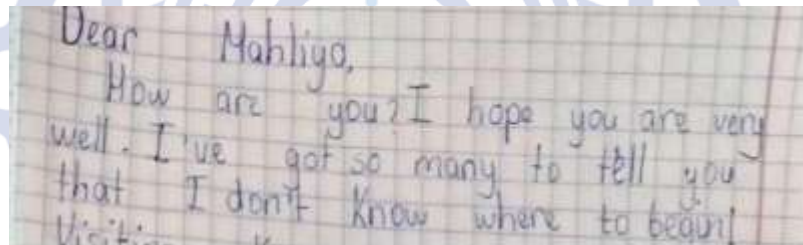 Dear Mahliyo,
How are you? I hope you are very
well. I've got so many to tell you
that I don't know where to begin!